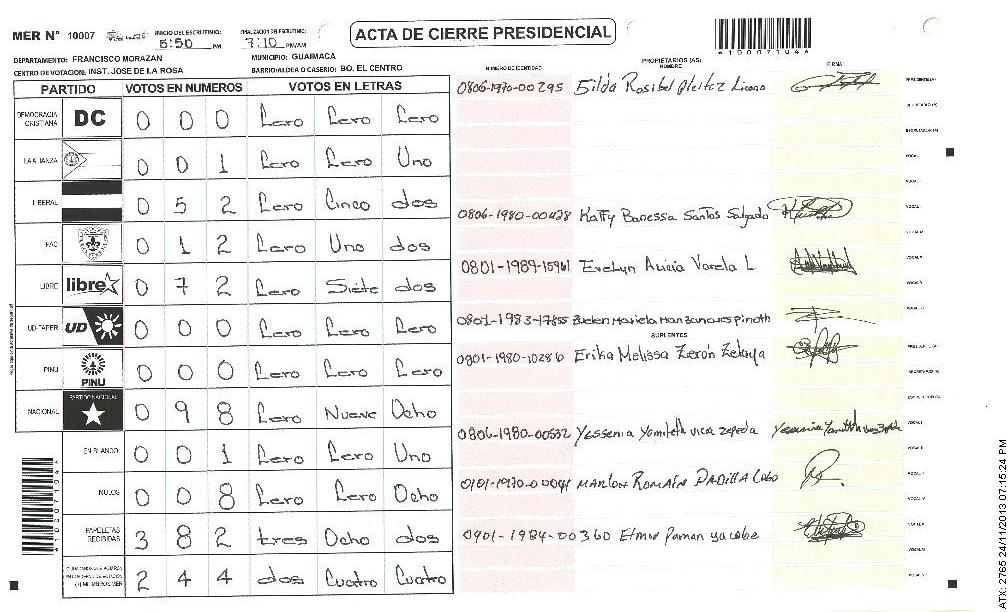 MER N° 10007
INICIO DEL ESCRUTINIO: 5:50 PM
7:10 PM/AM
ACTA DE CIERRE PRESIDENCIAL
*100071044*
DEPARTAMENTO: FRANCISCO MORAZAN
MUNICIPIO: GUAIMACA
CENTRO DE VOTACION: INST. JOSE DE LA ROSA
BARRIO/ALDEA O CASERIO: BO. EL CENTRO
NUMERO DE IDENTIDAD
PROPIETARIOS (AS)
NOMBRE
FIRMA
PARTIDO VOTOS EN NUMEROS VOTOS EN LETRAS
DEMOCRACIA CRISTIANA DC 0 0 0 Cero Cero Cero
LA ALIANZA 0 0 1 Cero Cero Uno
LIBERAL 0 5 2 Cero Cinco dos
PAC 0 1 2 Cero Uno dos
LIBRE libre 0 7 2 Cero Siete dos
UD-FAPER UD 0 0 0 Cero Cero Cero
PINU PINU 0 0 0 Cero Cero Cero
NACIONAL PARTIDO NACIONAL 0 9 8 Cero Nueve Ocho
EN BLANCO 0 0 1 Cero Cero Uno
NULOS 0 0 8 Cero Cero Ocho
PAPELETAS RECIBIDAS 3 8 2 tres Ocho dos
2 4 4 dos Cuatro Cuatro
0806-1970-00295 Gilda Rosibel
0806-1980-00428 Katty Banessa Santos Salgado
0801-1989-15961 Evelyn Alicia Varela L.
0801-1983-17855 Suelen Mariela Manzanares Pinoth
SUPLENTES
0801-1980-10286 Erika Melissa Zerón Zelaya
0806-1980-00532 Yessenia Yamileth zepeda
0101-1970-00041 MARLON ROMAIN PADILLA Lobo
0901-1984-00360
ATX: 2765 24/11/2013 07:15:24 PM